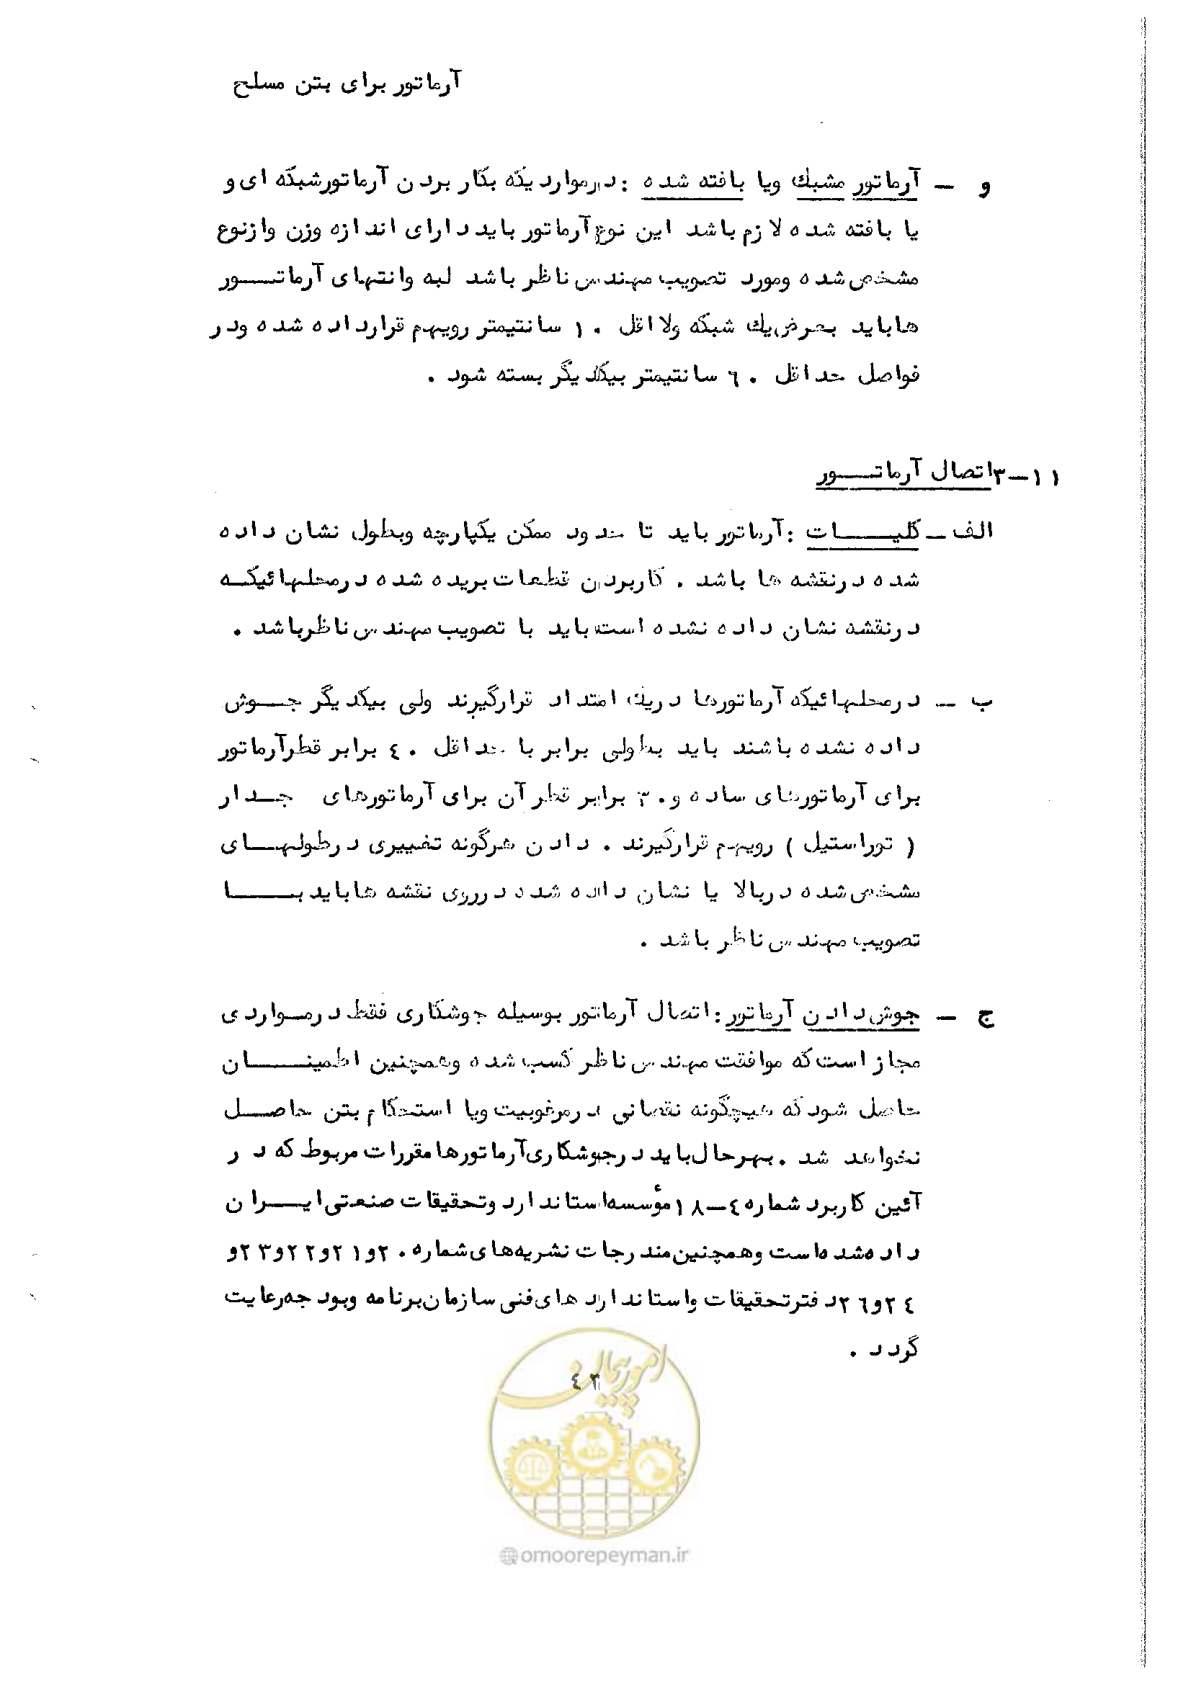 آرماتور برای بتن مسلح
و — آرماتور مشبك ویا بافته شده : درمواردیکه بکار بردن آرماتورشبکه ای و
یا بافته شده لازم باشد این نوع آرماتور باید دارای اندازه وزن وازنوع
مشخص شده ومورد تصویب مهندس ناظر باشد لبه وانتهای آرماتـــور
هاباید بعرض یك شبکه ولااقل ۱۰ سانتیمتر رویهم قرارداده شده ودر
فواصل حداقل ۶۰ سانتیمتر بیکدیگر بسته شود .
۱۱—۳ اتصال آرماتـــور
الف — کلیـــات : آرماتور باید تا حدود ممکن یکپارچه وبطول نشان داده
شده درنقشه ها باشد . کاربردن قطعات بریده شده درمحلهائیکـه
درنقشه نشان داده نشده است باید با تصویب مهندس ناظرباشد .
ب — درمحلهائیکه آرماتورها دریك امتداد قرارگیرند ولی بیکدیگر جـوش
داده نشده باشند باید بطولی برابر با حداقل ۴۰ برابر قطرآرماتور
برای آرماتورهای ساده و ۳۰ برابر قطر آن برای آرماتورهای جــدار
( توراستیل ) رویهم قرارگیرند . دادن هرگونه تغییری درطولهـــای
مشخص شده دربالا یا نشان داده شده درروی نقشه هاباید بـــا
تصویب مهندس ناظر باشد .
ج — جوش دادن آرماتور : اتصال آرماتور بوسیله جوشکاری فقط درمـواردی
مجاز است که موافقت مهندس ناظر کسب شده وهمچنین اطمینـــان
حاصل شود که هیچگونه نقصانی درمرغوبیت ویا استحکام بتن حاصــل
نخواهد شد . بهرحال باید درجوشکاری آرماتورها مقررات مربوط که در
آئین کاربرد شماره ۴—۱۸ مؤسسه استاندارد وتحقیقات صنعتی ایـــران
داده شده است وهمچنین مندرجات نشریه های شماره ۲۰ و ۲۱ و ۲۲ و ۲۳ و
۲۴ و ۲۶ دفتر تحقیقات واستانداردهای فنی سازمان برنامه وبودجه رعایت
گردد .
۴۳
امور پیمان
@omoorepeyman.ir